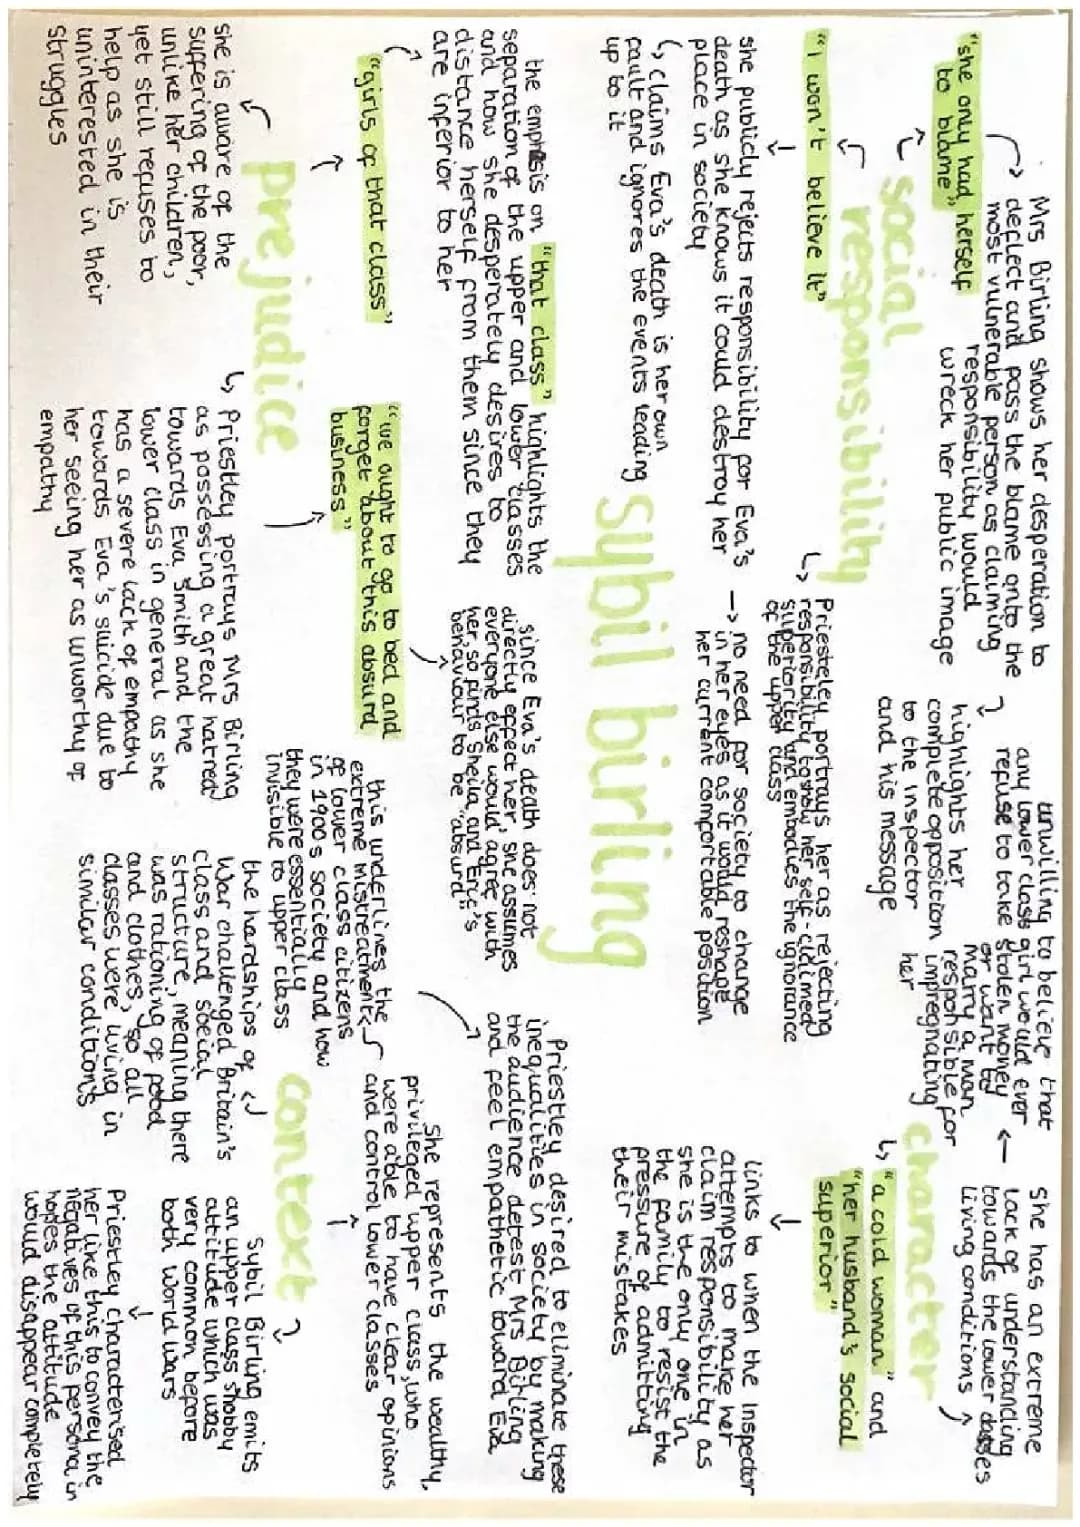 Mrs Birling shows her desperation to
deflect and pass the blame onto the
most vulnerable person as claiming
responsibility would
wreck her public image
"she only had herself
to blame"
social
responsibility
"I won't believe it"
she publicly rejects responsibility for Eva's
death as she knows it could destroy her
place in society
claims Eva's death is her own
fault and ignores the events leading
up to it
no need for society to change
in her eyes as it would reshape
her current comfortable position
Priesteley portrays her as rejecting
responsibility to show her self-claimed
superiority and embodies the ignorance
of the upper class
highlights her
complete opposition
to the inspector
and his message
unwilling to believe that
any lower class girl would ever
refuse to take stolen money
or want to
marry a man
responsible for
impregnating
her
She has an extreme
lack of understanding
towards the lower classes
living conditions
character
"a cold woman" and
"her husband's social
superior"
links to when the Inspector
attempts to make her
claim responsibility as
she is the only one in
the family to resist the
pressure of admitting
their mistakes
sybil birling
the emphesis on "that class" highlights the
separation of the upper and lower classes
and how she desperately desires to
distance herself from them since they
are inferior to her
"girls of that class"
prejudice
she is aware of the
suffering of the poor,
unlike her children,
yet still refuses to
help as she is
uninterested in their
struggles
"we ought to go to bed and
forget about this absurd
business"
since Eva's death does not
directly effect her, she assumes
everyone else would agree with
her, so finds Sheila and Eric's
behaviour to be "absurd"
Priestley portrays Mrs Birling
as possessing a great hatred
towards Eva Smith and the
lower class in general as she
has a severe lack of empathy
towards Eva's suicide due to
her seeing her as unworthy of
empathy
this underlines the
extreme mistreatment
of lower class citizens
in 1900s society and how
they were essentially
invisible to upper class
Priestley desired to eliminate these
inequalities in society by making
the audience detest Mrs Birling
and feel empathetic toward Eva
context
She represents the wealthy,
privileged upper class, who
were able to have clear opinions
and control lower classes
the hardships of
War challenged Britain's
class and social
structure, meaning there
was rationing of food
and clothes, so all
classes were living in
similar conditions
Sybil Birling emits
an upper class snobby
attitude which was
very common before
both world wars
Priestley characterised
her like this to convey the
negatives of this persona in
hopes the attitude
would disappear completely